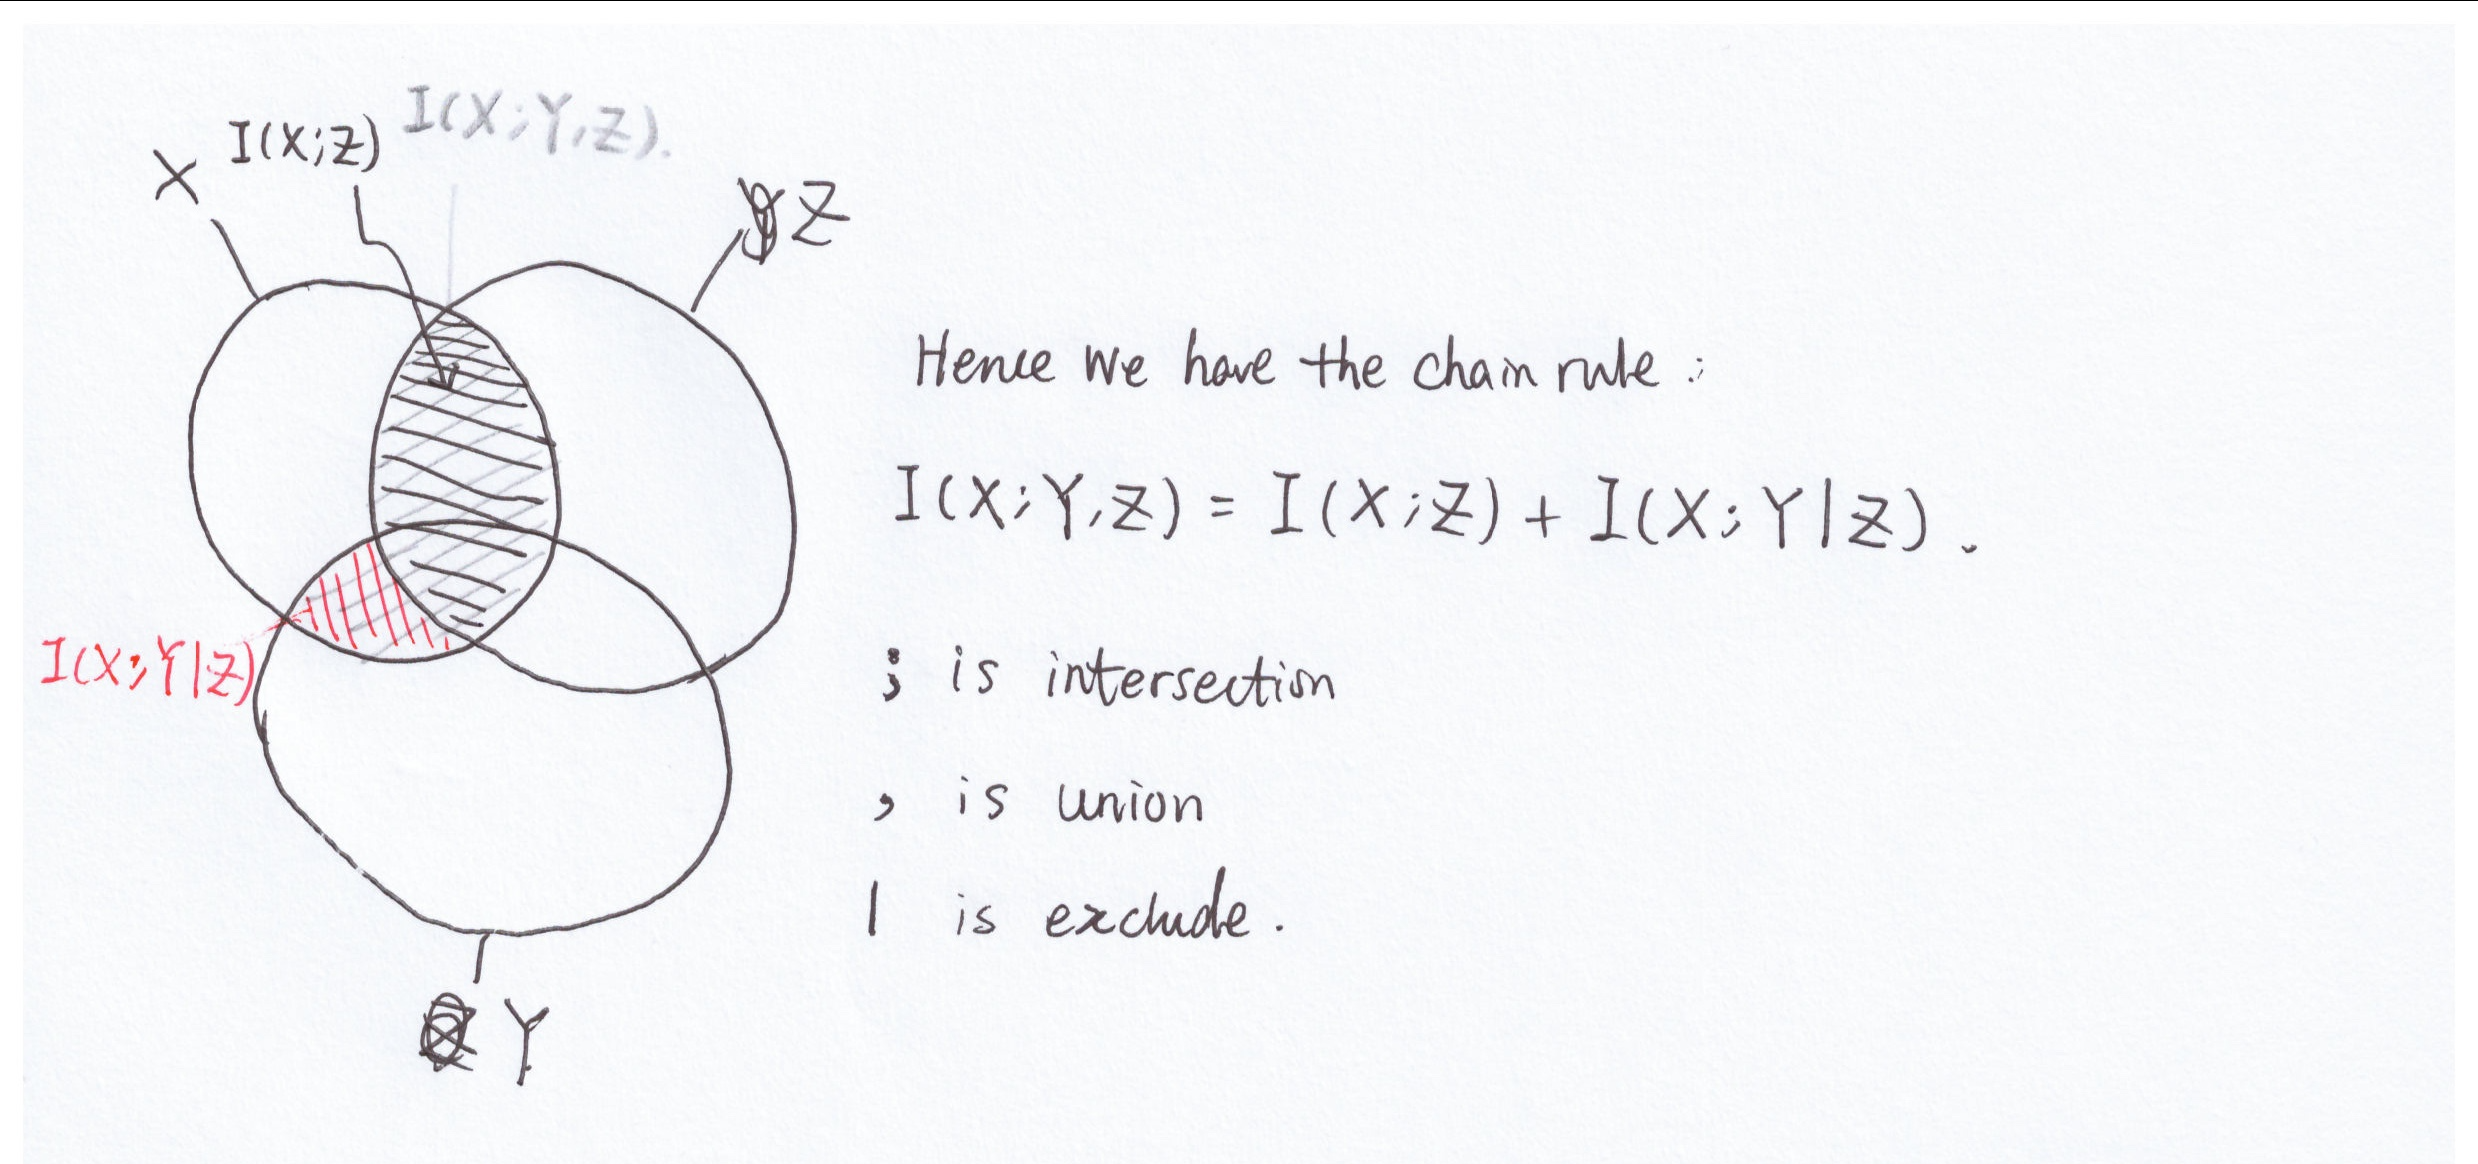 I(X;Y,Z).
I(X;Z)
X
Z
Hence we have the chain rule :
I(X;Y,Z) = I(X;Z) + I(X;Y|Z) .
I(X;Y|Z)
; is intersection
, is union
| is exclude .
Y